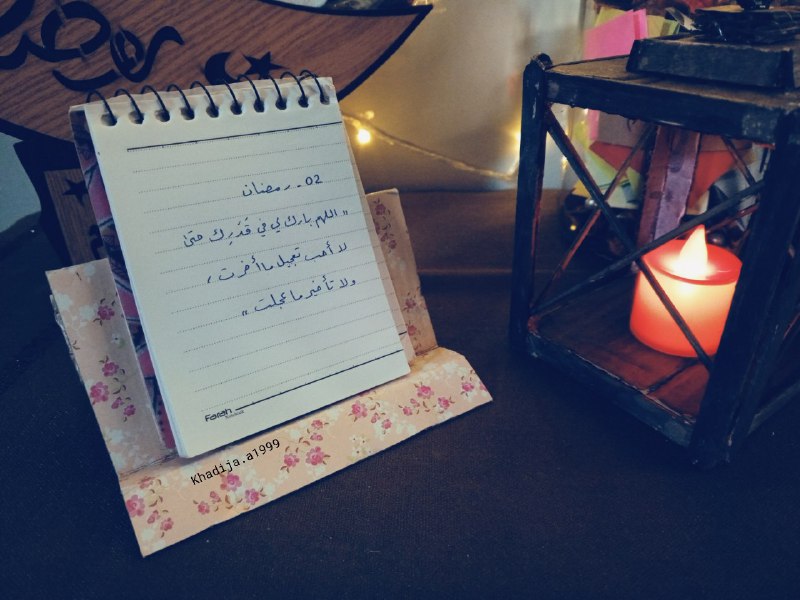 رمضان
02 - رمضان
" اللهم بارك لي في قَدَرِك حتىٰ
لا أحب تعجيل ما أخرت ،
ولا تأخير ما عجلت "
Farah
Khadija.a1999